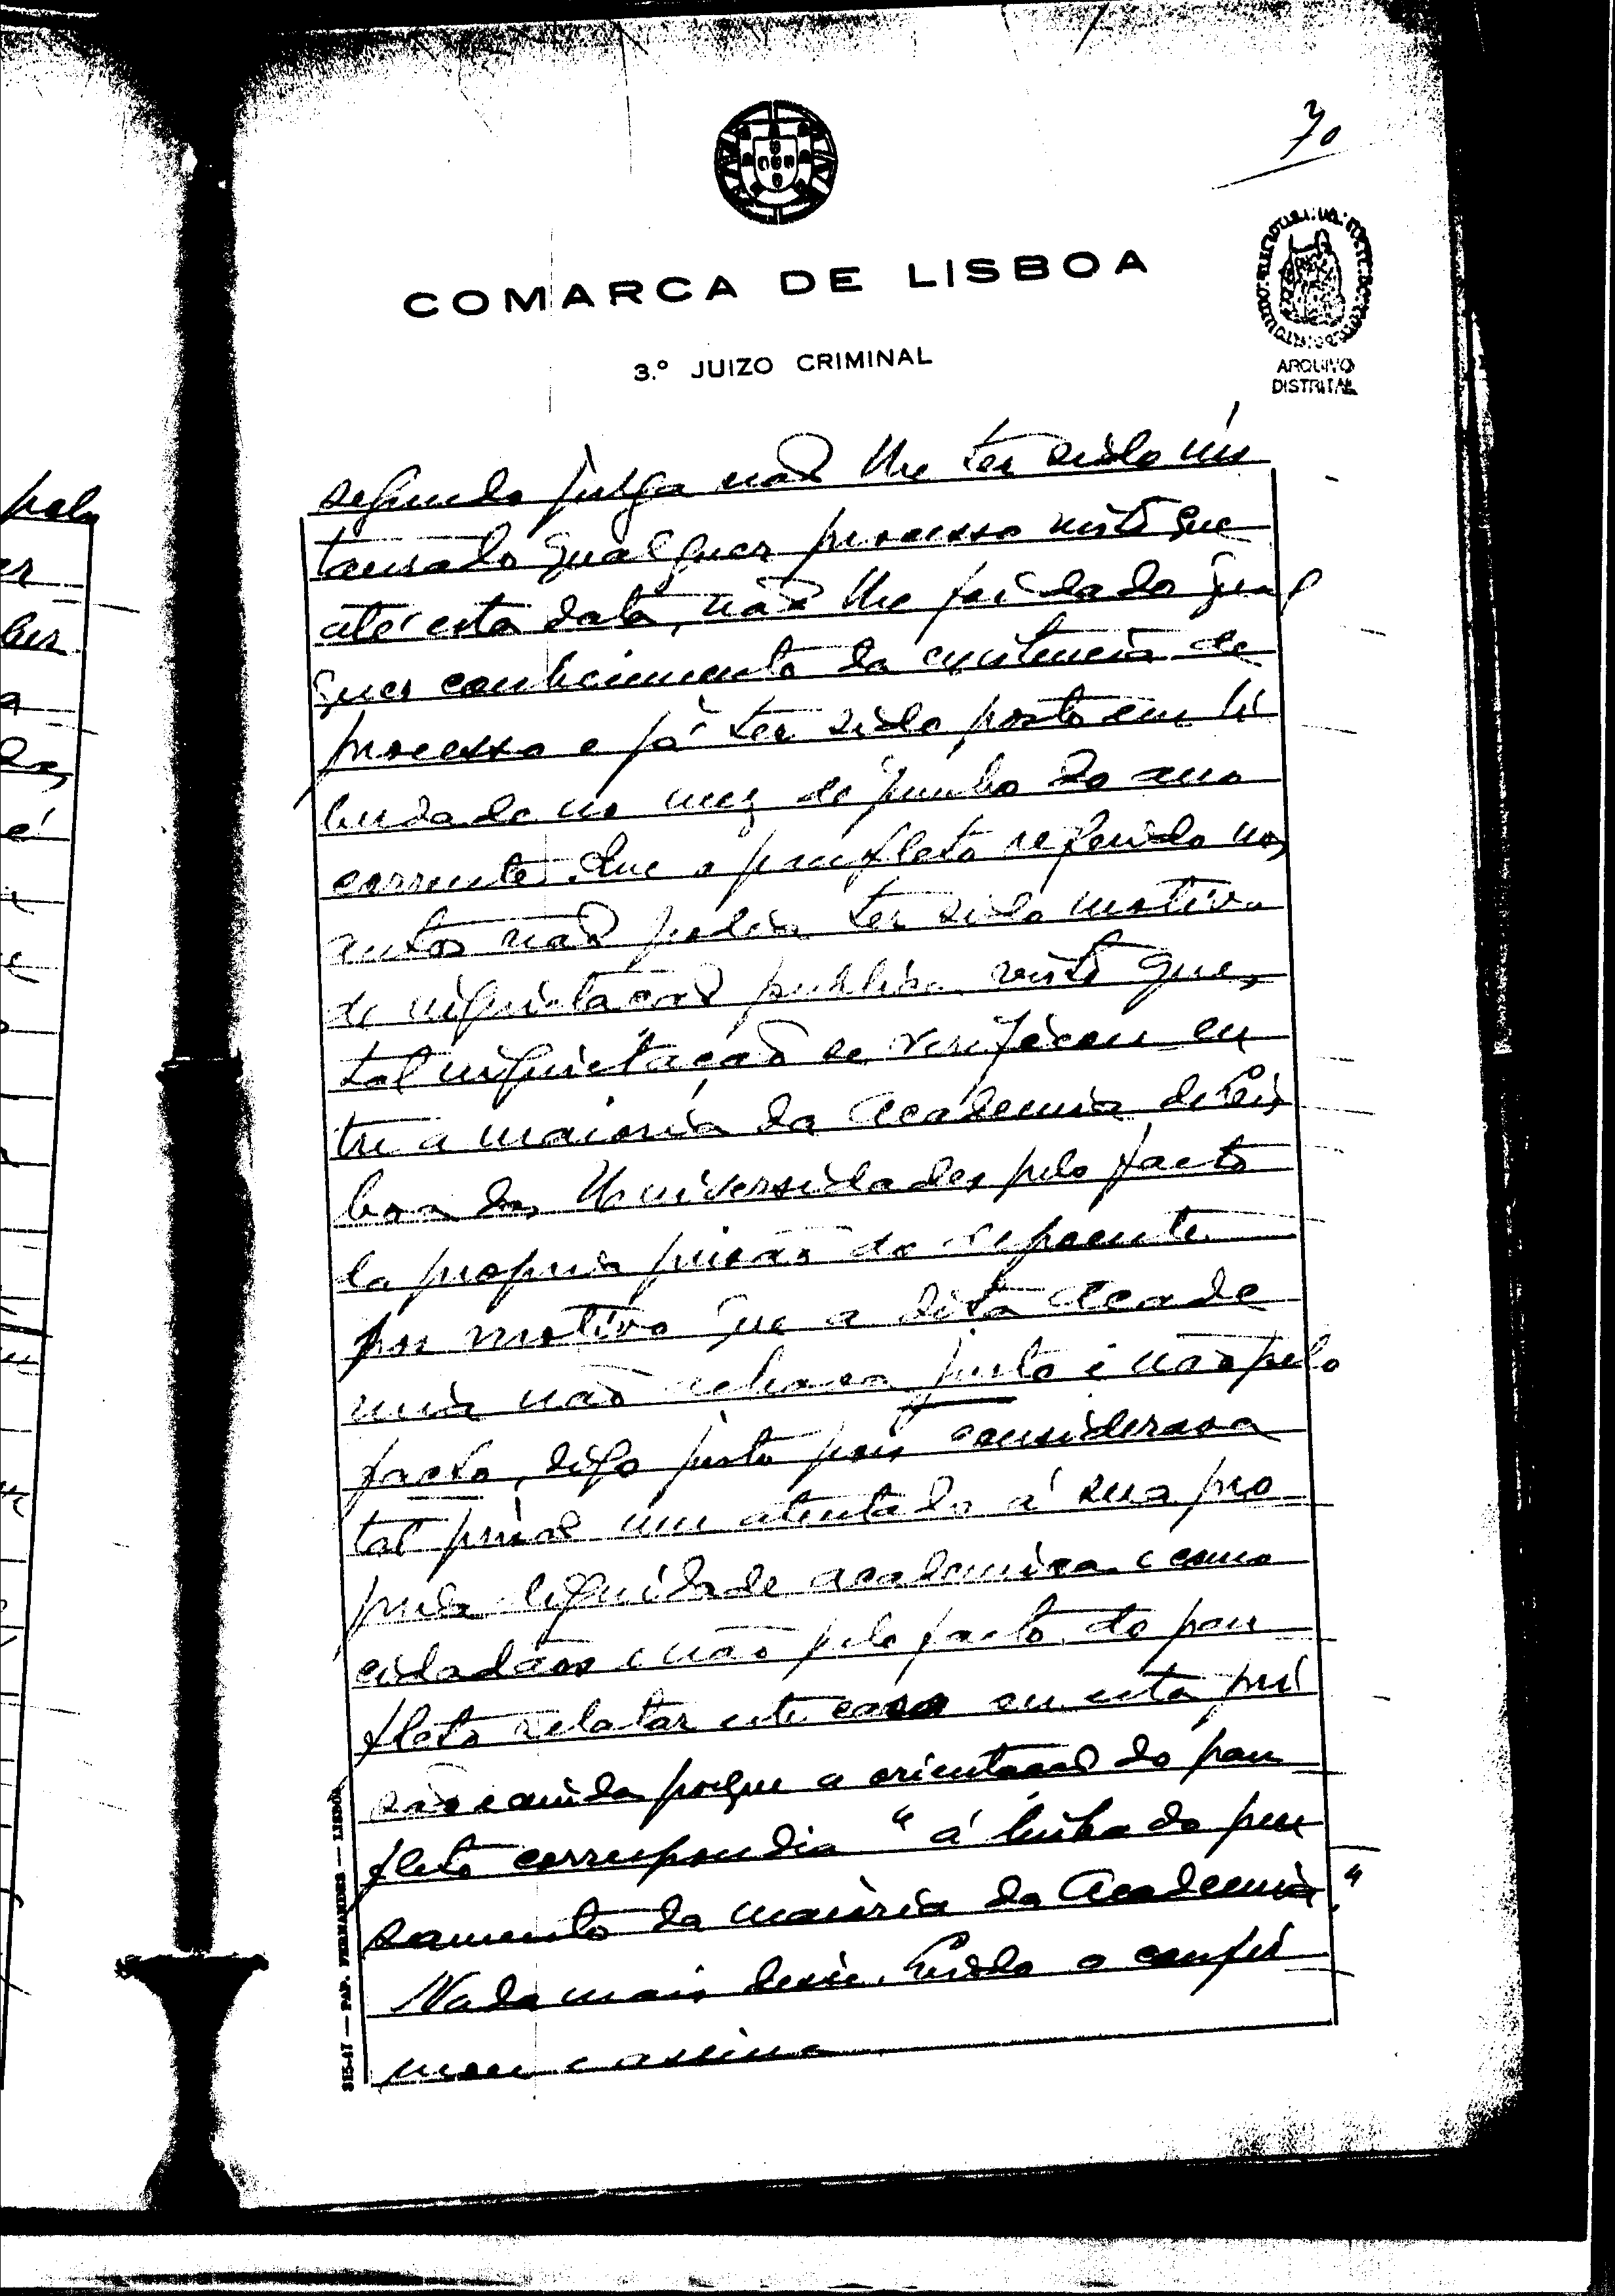 70
COMARCA DE LISBOA
3.º JUIZO CRIMINAL
ARQUIVO
DISTRITAL
segundo julga não lhe ter sido ins
taurado qualquer processo visto que
até esta data, não lhe foi dado qual
quer conhecimento da existencia de
processo e já ter sido posto em li
berdade no mez de junho do ano
corrente. Que o panfleto referido nos
autos não podia ter sido motivo
de inquietação publica visto que,
tal inquietação se verificou en
tre a maioria da Academia de Lis
boa das Universidades pelo facto
da propria prisão do depoente
por motivo que a dita Acade
mia não achava justo e não pelo
facto, digo justo pois considerava
tal prisão um atentado á sua pro
pria dignidade academica e como
cidadãos e não pelo facto do pan
fleto relatar este caso ou esta pri
são e ainda porque a orientação do pan
fleto correspondia "á linha do pen
samento da maioria da Academia."
Nada mais disse. Lido o confir
mou e assina
315-47 — PAP. FERNANDES — LISBOA
pelo
er
ber
a
é